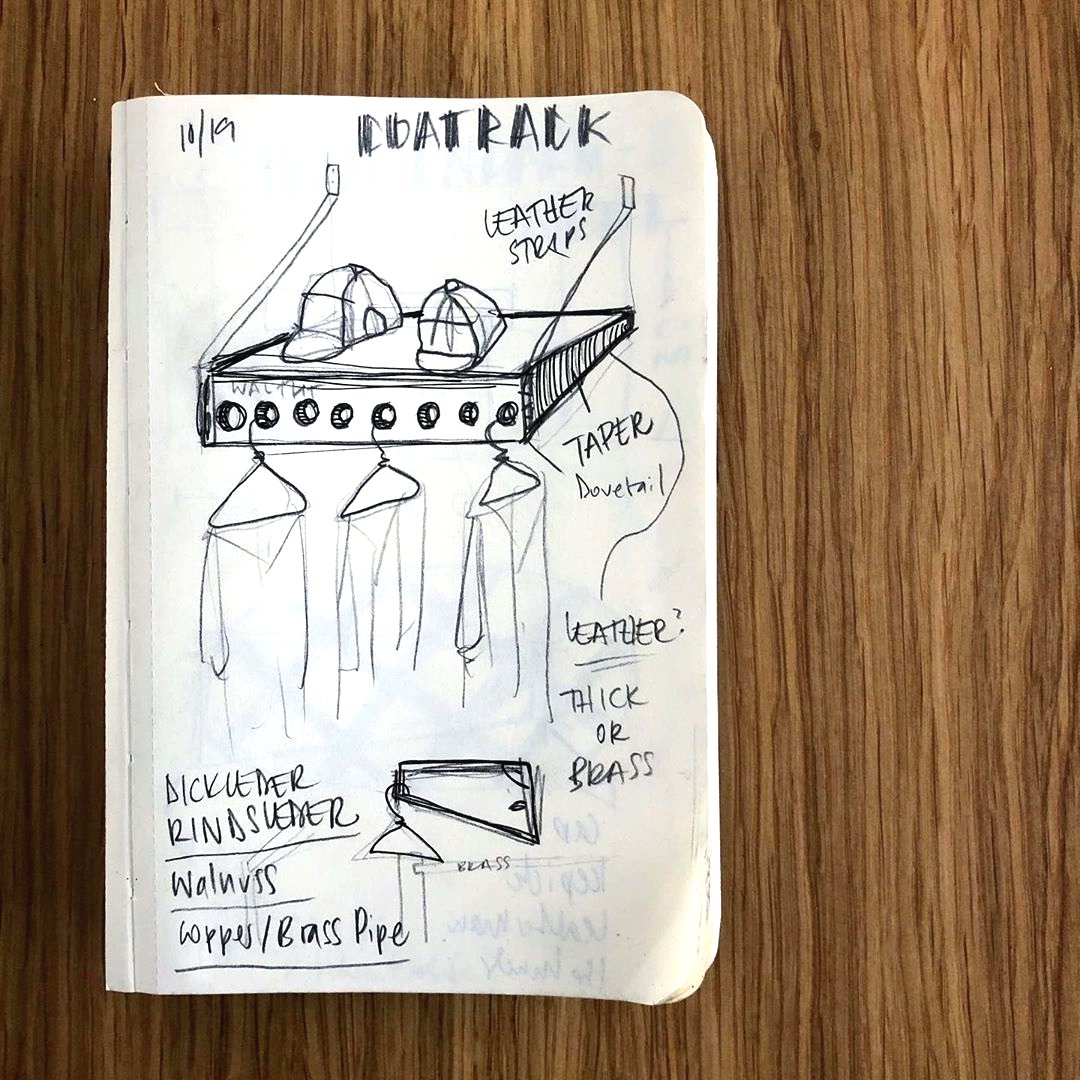 10/19
COATRACK
LEATHER
STRAPS
WALNUT
TAPER
Dovetail
LEATHER?
THICK
OR
BRASS
DICKLEDER
RINDSLEDER
Walnuss
Copper/Brass Pipe
BRASS